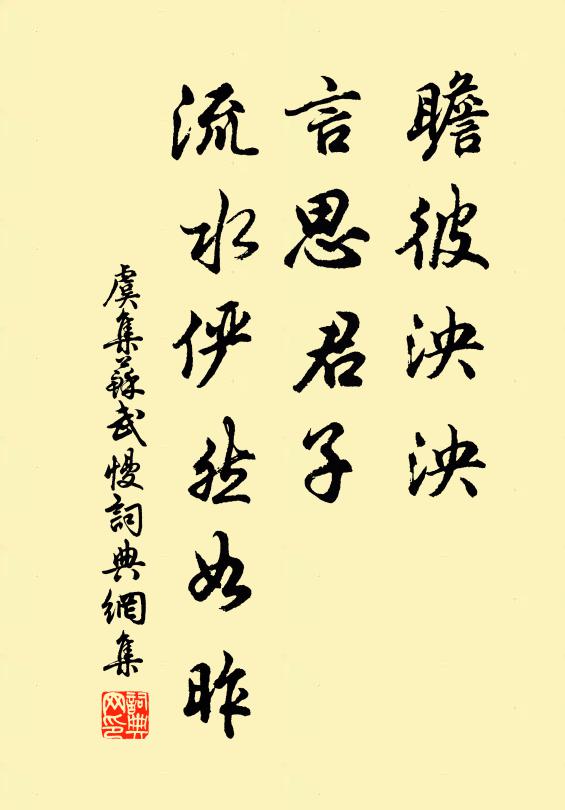 瞻彼泱泱
言思君子
流水俨然如昨
虞集蘇武慢詞典網集
詞典网印